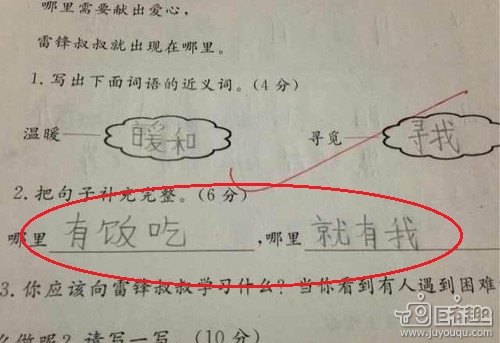 哪里需要献出爱心，
雷锋叔叔就出现在哪里。
1.写出下面词语的近义词。(4分)
温暖 暖和 寻觅 寻找
2.把句子补充完整。(6分)
哪里 有饭吃 ,哪里 就有我
3.你应该向雷锋叔叔学习什么？当你看到有人遇到困难
么做呢？请写一写。(10分)
巨有趣
www.juyouqu.com